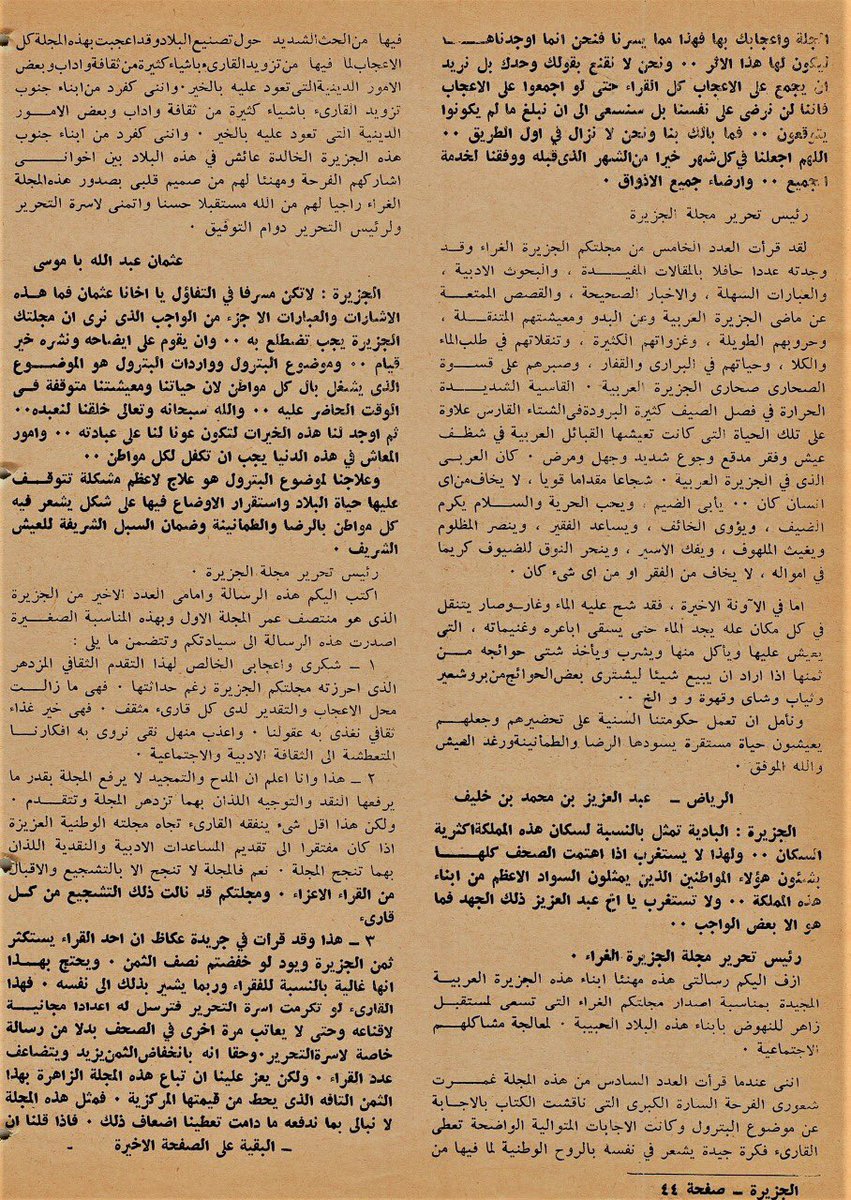 المجلة واعجابك بها فهذا مما يسرنا فنحن انما اوجدناهـــا
ليكون لها هذا الاثر ٠٠ ونحن لا نقنع بقولك وحدك بل نريد
ان يجمع على الاعجاب كل القراء حتى لو اجمعوا على الاعجاب
فاننا لن نرضى على نفسنا بل سنسعى الى ان نبلغ ما لم يكونوا
يتوقعون ٠٠ فما بالك بنا ونحن لا نزال في اول الطريق ٠٠
اللهم اجعلنا في كل شهر خيرا من الشهر الذى قبله ووفقنا لخدمة
الجميع ٠٠ وارضاء جميع الاذواق ٠
رئيس تحرير مجلة الجزيرة
لقد قرأت العدد الخامس من مجلتكم الجزيرة الغراء وقــد
وجدته عددا حافلا بالمقالات المفيــدة ، والبحوث الادبية ،
والعبارات السهلة ، والاخبار الصحيحة ، والقصص الممتعــة
عن ماضى الجزيرة العربية وعن البدو ومعيشتهم المتنقلــة ،
وحروبهم الطويلة ، وغزواتهم الكثيرة ، وتنقلاتهم في طلب الماء
والكلا ، وحياتهم في البرارى والقفار ، وصبرهم على قســوة
الصحارى صحارى الجزيرة العربية ٠ القاسية الشديــدة
الحرارة في فصل الصيف كثيرة البرودة فى الشتاء القارس علاوة
على تلك الحياة التى كانت تعيشها القبائل العربية في شظــف
عيش وفقر مدقع وجوع شديد وجهل ومرض ٠ كان العربـى
الذى في الجزيرة العربية ٠ شجاعا مقداما قويا ، لا يخاف من اى
انسان كان ٠٠ يأبى الضيم ، ويحب الحرية والســلام يكرم
الضيف ، ويؤوى الخائف ، ويساعد الفقير ، وينصر المظلوم
ويغيث الملهوف ، ويفك الاسير ، وينحر النوق للضيوف كريما
في امواله ، لا يخاف من الفقر او من اى شىء كان ٠
اما في الآونة الاخيرة ، فقد شح عليه الماء وغار وصار يتنقل
في كل مكان عله يجد الماء حتى يسقى اباعره وغنيماته ، التى
يعيش عليها ويأكل منها ويشرب ويأخذ شتى حوائجه مــن
ثمنها اذا اراد ان يبيع شيئا ليشترى بعض الحوائج من بر وشعير
وثياب وشاى وقهوة و و الخ ٠٠
ونأمل ان تعمل حكومتنا السنية على تحضيرهم وجعلهــم
يعيشون حياة مستقرة يسودها الرضا والطمأنينة ورغد العيش
والله الموفق ٠
الرياض ــ عبد العزيز بن محمد بن خليف
الجزيرة : البادية تمثل بالنسبة لسكان هذه المملكة اكثرية
السكان ٠٠ ولهذا لا يستغرب اذا اهتمت الصحف كلهـــا
بشئون هؤلاء المواطنين الذين يمثلون السواد الاعظم من ابناء
هذه المملكة ٠٠ ولا تستغرب يا اخ عبد العزيز ذلك الجهد فما
هو الا بعض الواجب ٠٠
رئيس تحرير مجلة الجزيرة الغراء ٠
ازف اليكم رسالتى هذه مهنئا ابناء هذه الجزيرة العربيـة
المجيدة بمناسبة اصدار مجلتكم الغراء التى تسعى لمستقبـل
زاهر للنهوض بابناء هذه البلاد الحبيبة ٠ لمعالجة مشاكلهــم
الاجتماعية ٠
اننى عندما قرأت العدد السادس من هذه المجلة غمــرت
شعورى الفرحة السارة الكبرى التى ناقشت الكتاب بالاجابـة
عن موضوع البترول وكانت الاجابات المتوالية الواضحة تعطى
القارىء فكرة جيدة يشعر في نفسه بالروح الوطنية لما فيها من
فيها من الحث الشديد حول تصنيع البلاد وقد اعجبت بهذه المجلة كل
الاعجاب لما فيها من تزويد القارىء باشياء كثيرة من ثقافة واداب وبعض
الامور الدينية التى تعود عليه بالخير ٠ واننى كفرد من ابناء جنوب
تزويد القارىء باشياء كثيرة من ثقافة واداب وبعض الامور
الدينية التى تعود عليه بالخير ٠ واننى كفرد من ابناء جنوب
هذه الجزيرة الخالدة عائش في هذه البلاد بين اخوانــى
اشاركهم الفرحة ومهنئا لهم من صميم قلبى بصدور هذه المجلة
الغراء راجيا لهم من الله مستقبلا حسنا واتمنى لاسرة التحرير
ولرئيس التحرير دوام التوفيق ٠
عثمان عبد الله با موسى
الجزيرة : لا تكن مسرفا في التفاؤل يا اخانا عثمان فما هــذه
الاشارات والعبارات الا جزء من الواجب الذى نرى ان مجلتك
الجزيرة يجب تضطلع به ٠٠ وان يقوم على ايضاحه ونشره خير
قيام ٠٠ وموضوع البترول وواردات البترول هو الموضــوع
الذى يشغل بال كل مواطن لان حياتنا ومعيشتنا متوقفة فــى
الوقت الحاضر عليه ٠٠ والله سبحانه وتعالى خلقنا لنعبده٠٠
ثم اوجد لنا هذه الخيرات لتكون عونا لنا على عبادته ٠٠ وامور
المعاش في هذه الدنيا يجب ان تكفل لكل مواطن ٠٠
وعلاجنا لموضوع البترول هو علاج لاعظم مشكلة تتوقــف
عليها حياة البلاد واستقرار الاوضاع فيها على شكل يشعر فيه
كل مواطن بالرضا والطمانينة وضمان السبل الشريفة للعيش
الشريف ٠
رئيس تحرير مجلة الجزيرة ٠
اكتب اليكم هذه الرسالة وامامى العدد الاخير من الجزيرة
الذى هو منتصف عمر المجلة الاول وبهذه المناسبة الصغيــرة
اصدرت هذه الرسالة الى سيادتكم وتتضمن ما يلى :
١ ــ شكرى واعجابى الخالص لهذا التقدم الثقافي المزدهر
الذى احرزته مجلتكم الجزيرة رغم حداثتها ٠ فهى ما زالــت
محل الاعجاب والتقدير لدى كل قارىء مثقف ٠ فهى خير غذاء
ثقافي نغذى به عقولنا ٠ واعذب منهل نقى نروى به افكارنــا
المتعطشة الى الثقافة الادبية والاجتماعية ٠
٢ ــ هذا وانا اعلم ان المدح والتمجيد لا يرفع المجلة بقدر ما
يرفعها النقد والتوجيه اللذان بهما تزدهر المجلة وتتقدم ٠
ولكن هذا اقل شىء ينفقه القارىء تجاه مجلته الوطنية العزيزة
اذا كان مفتقرا الى تقديم المساعدات الادبية والنقدية اللذان
بهما تنجح المجلة ٠ نعم فالمجلة لا تنجح الا بالتشجيع والاقبال
من القراء الاعزاء ٠ ومجلتكم قد نالت ذلك التشجيع من كــل
قارىء
٣ ــ هذا وقد قرات في جريدة عكاظ ان احد القراء يستكثر
ثمن الجزيرة ويود لو خفضتم نصف الثمن ٠ ويحتج بهــذا
انها غالية بالنسبة للفقراء وربما يشير بذلك الى نفسه ٠ فهذا
القارىء لو تكرمت اسرة التحرير فترسل له اعدادا مجانيــة
لاقناعه وحتى لا يعاتب مرة اخرى في الصحف بدلا من رسالة
خاصة لاسرة التحرير٠ وحقا انه بانخفاض الثمن يزيد ويتضاعف
عدد القراء ٠ ولكن يعز علينا ان تباع هذه المجلة الزاهرة بهذا
الثمن التافه الذى يحط من قيمتها المركزية ٠ فمثل هذه المجلة
لا نبالى بما ندفعه ما دامت تعطينا اضعاف ذلك ٠ فاذا قلنا ان
ــ البقية على الصفحة الاخيرة ــ
الجزيرة ــ صفحة ٤٤